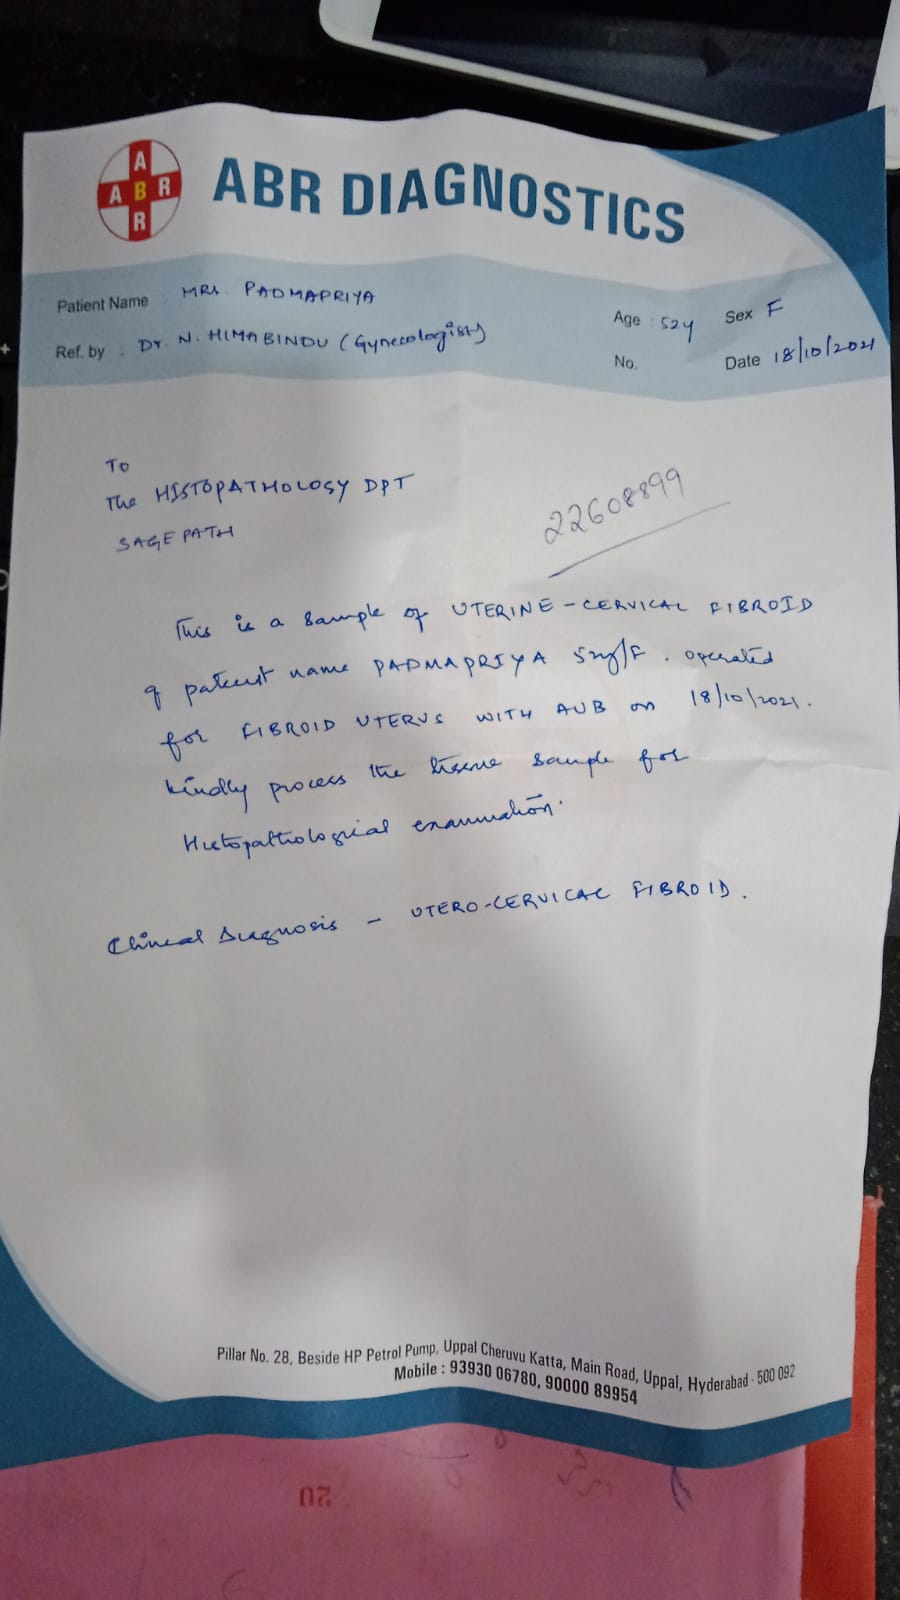 A
A B R
R
ABR DIAGNOSTICS
Patient Name MRS. PADMAPRIYA
Age : 52y Sex F
Ref. by : Dr. N. HIMABINDU (Gynecologist)
No. Date 18/10/2021
To
The HISTOPATHOLOGY DPT
SAGEPATH
22608899
This is a sample of UTERINE-CERVICAL FIBROID
of patient name PADMAPRIYA 52y/F. operated
for FIBROID UTERUS WITH AUB on 18/10/2021.
kindly process the tissue sample for
Histopathological examination.
Clinical Diagnosis - UTERO-CERVICAL FIBROID.
Pillar No. 28, Beside HP Petrol Pump, Uppal Cheruvu Katta, Main Road, Uppal, Hyderabad - 500 092
Mobile : 93930 06780, 90000 89954